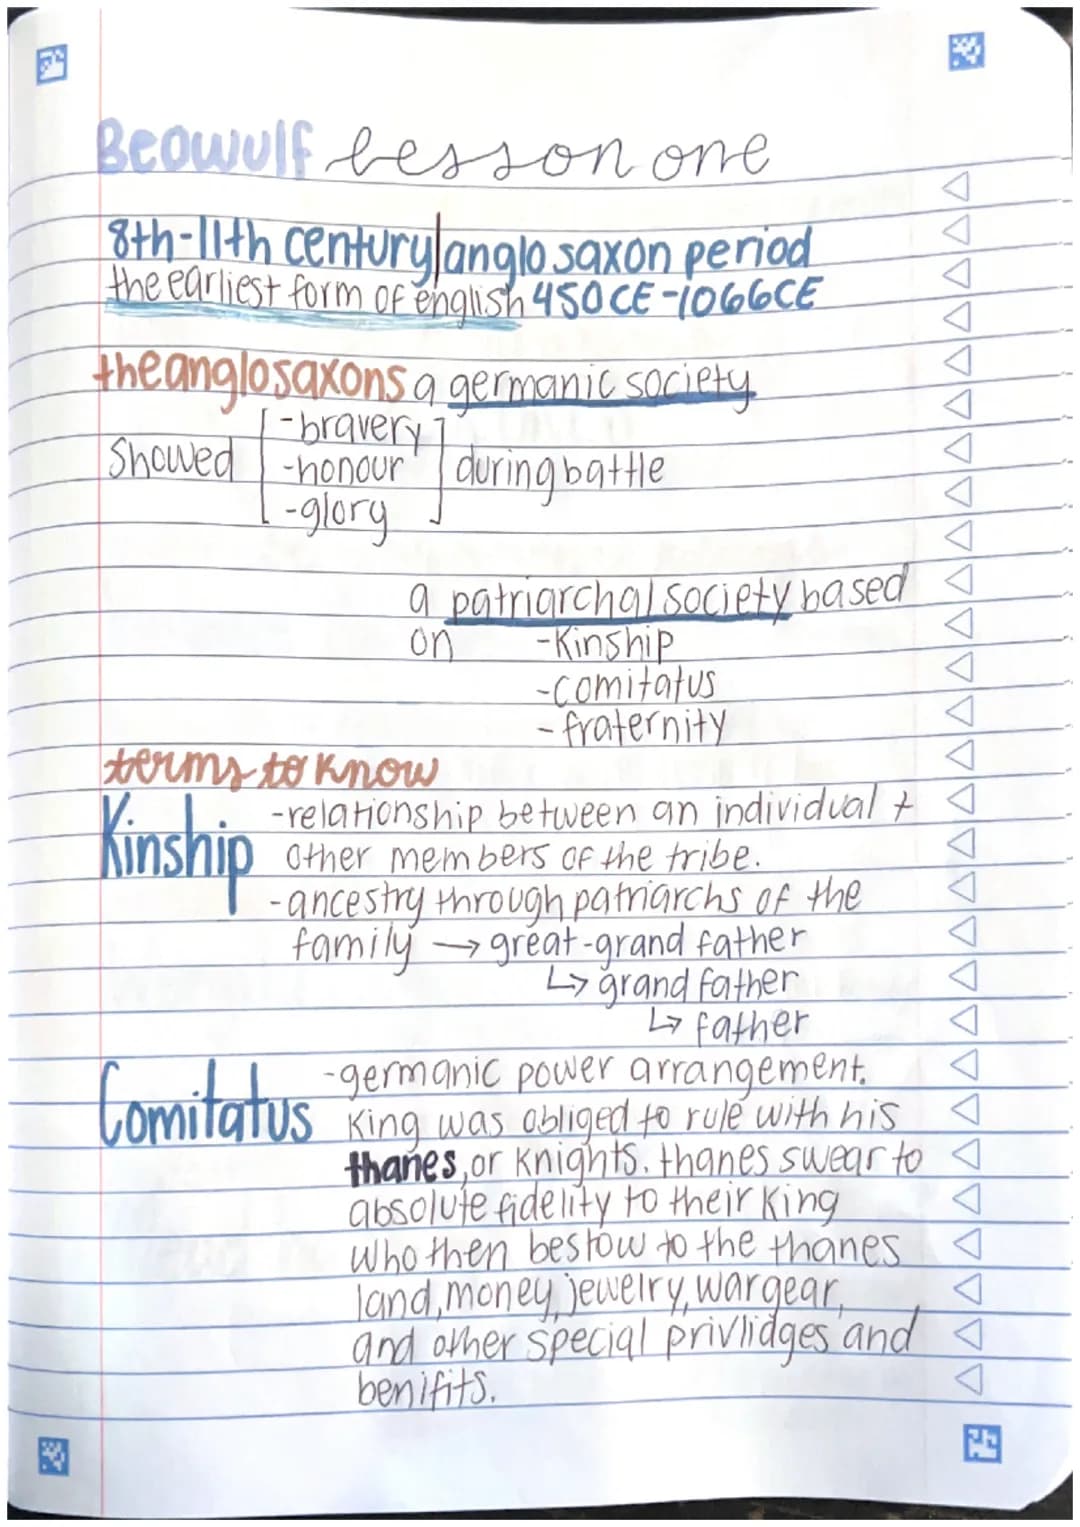 Beowulf lesson one
8th-11th century|anglo saxon period
the earliest form of english 450CE-1066CE
the anglo saxons a germanic society
-bravery
Showed -honour during battle
-glory
a patriarchal society based
on -Kinship
-comitatus
-fraternity
terms to know
Kinship -relationship between an individual +
other members of the tribe.
-ancestry through patriarchs of the
family → great-grand father
↳ grand father
↳ father
Comitatus -germanic power arrangement.
King was obliged to rule with his
thanes, or knights. thanes swear to
absolute fidelity to their King
who then bestow to the thanes
land, money, jewelry, wargear,
and other special privlidges and
benifits.